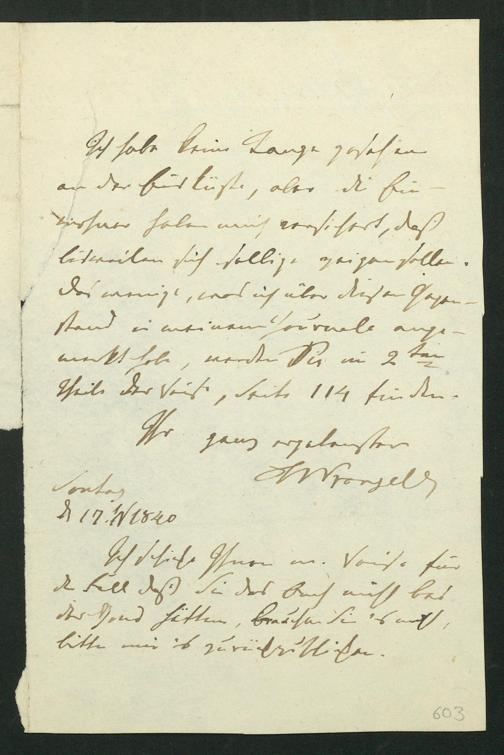 Ich habe keine Tange gesehen
an der Eisküste, aber die Ein-
wohner haben mich versichert, daß
bisweilen sich selbige zeigen sollen.
Das wenige, was ich über diesen Gegen-
stand in meinem Journale ange-
merkt habe, werden Sie im 2ten
Theile der Reise, Seite 114 finden.
Ihr ganz ergebenster
FWrangell
Sontag
d 17. 1840
Ich schicke Ihnen m. Reise für
de Fall daß Sie das Buch nicht bei
der Hand hätten, brauchen Sie's nicht,
bitte mir's zurückzuschicken.
603